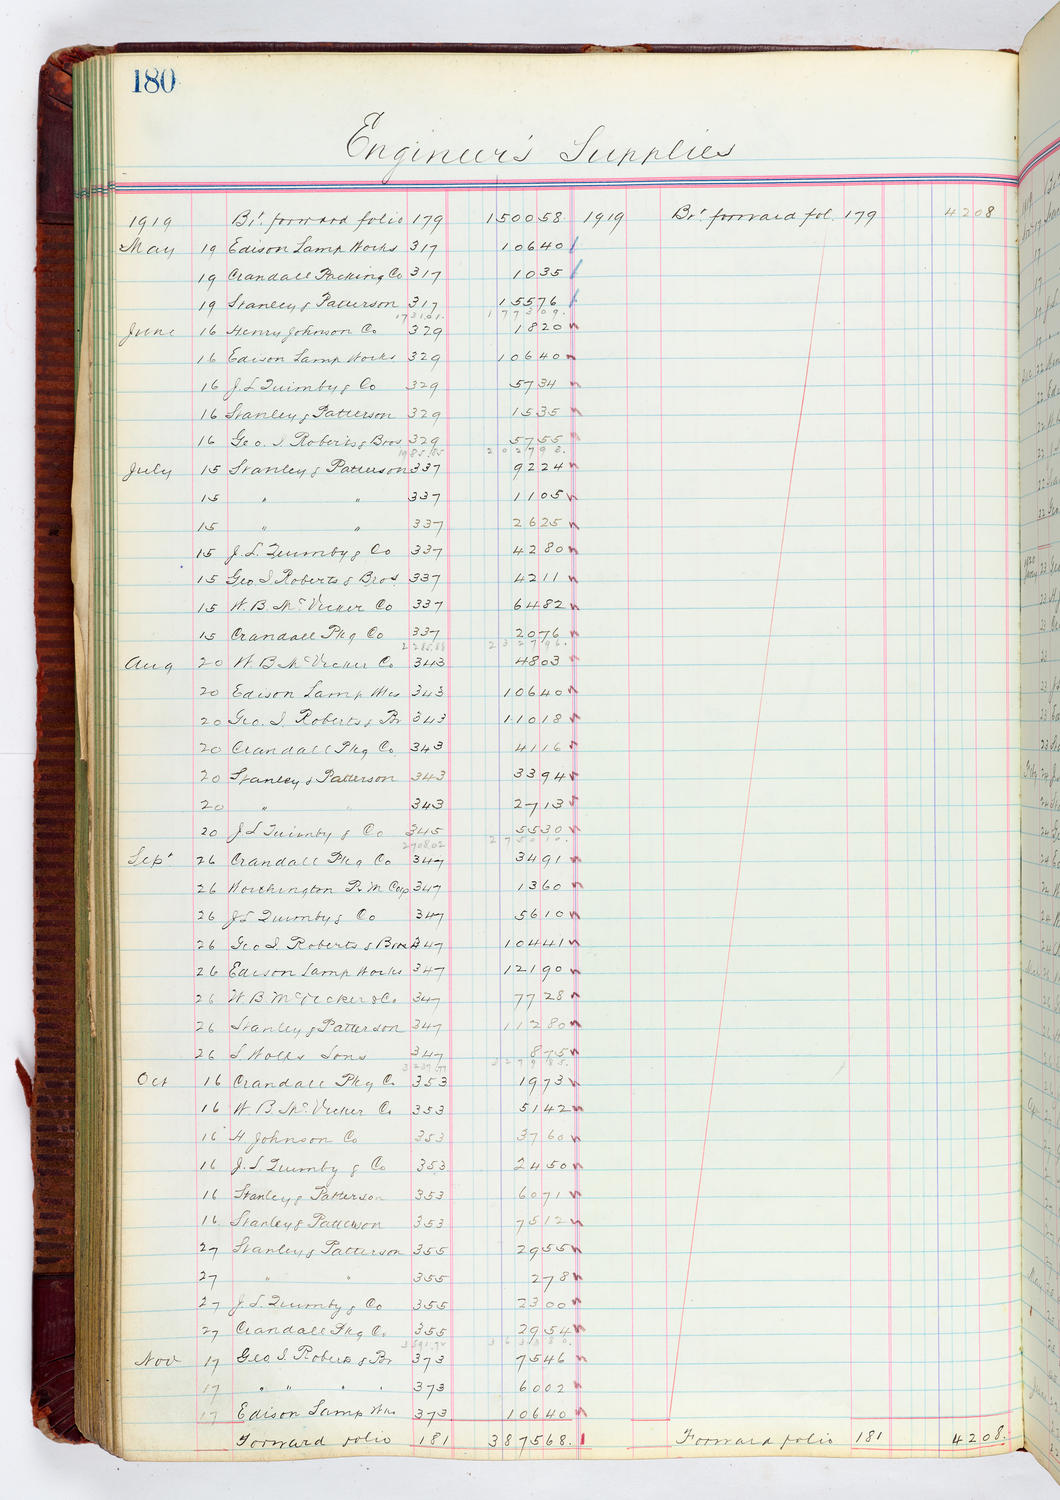 180
Engineer's Supplies
1919 Bt. forward folio 179 150058 1919 Bt. forward fol. 179 4208
May 19 Edison Lamp Works 317 10640
19 Crandall Packing Co 317 1035
19 Stanley & Patterson 317 15576
173101. 177309.
June 16 Henry Johnson Co 329 1820
16 Edison Lamp Works 329 10640
16 J. L. Quimby & Co 329 5734
16 Stanley & Patterson 329 1535
16 Geo. I. Roberts & Bros 329 5755
1985.85 202793.
July 15 Stanley & Patterson 337 9224
15 " " 337 1105
15 " " 337 2625
15 J. L. Quimby & Co 337 4280
15 Geo I Roberts & Bros 337 4211
15 W. B. McVicker Co 337 6482
15 Crandall Pkg Co 337 2076
2285.88 232796.
Aug 20 W B McVicker Co 343 4803
20 Edison Lamp Wks 343 10640
20 Geo. I. Roberts & Br 343 11018
20 Crandall Pkg Co 343 4116
20 Stanley & Patterson 343 3394
20 " " 343 2713
20 J L Quimby & Co 345 5530
2708.02 275010.
Sept 26 Crandall Pkg Co 347 3491
26 Worthington P. M Corp 347 1360
26 J L Quimby & Co 347 5610
26 Geo I. Roberts & Bros 347 10441
26 Edison Lamp Works 347 12190
26 W. B. McVicker & Co. 347 7728
26 Stanley & Patterson 347 11280
26 I. Wolfs Sons 347 875
3237.77 327985.
Oct 16 Crandall Pkg C. 353 1973
16 W B. McVicker Co 353 5142
16 H Johnson Co 353 3760
16 J. L Quimby & Co 353 2450
16 Stanley & Patterson 353 6071
16 Stanley & Patterson 353 7512
27 Stanley & Patterson 355 2955
27 " " 355 278
27 J. L. Quimby & Co 355 2300
27 Crandall Pkg C. 355 2954
3591.72 363380.
Nov 17 Geo. I. Roberts & Br 373 7546
17 " " " " 373 6002
17 Edison Lamp Wks 373 10640
Forward folio 181 387568. Forward folio 181 4208.